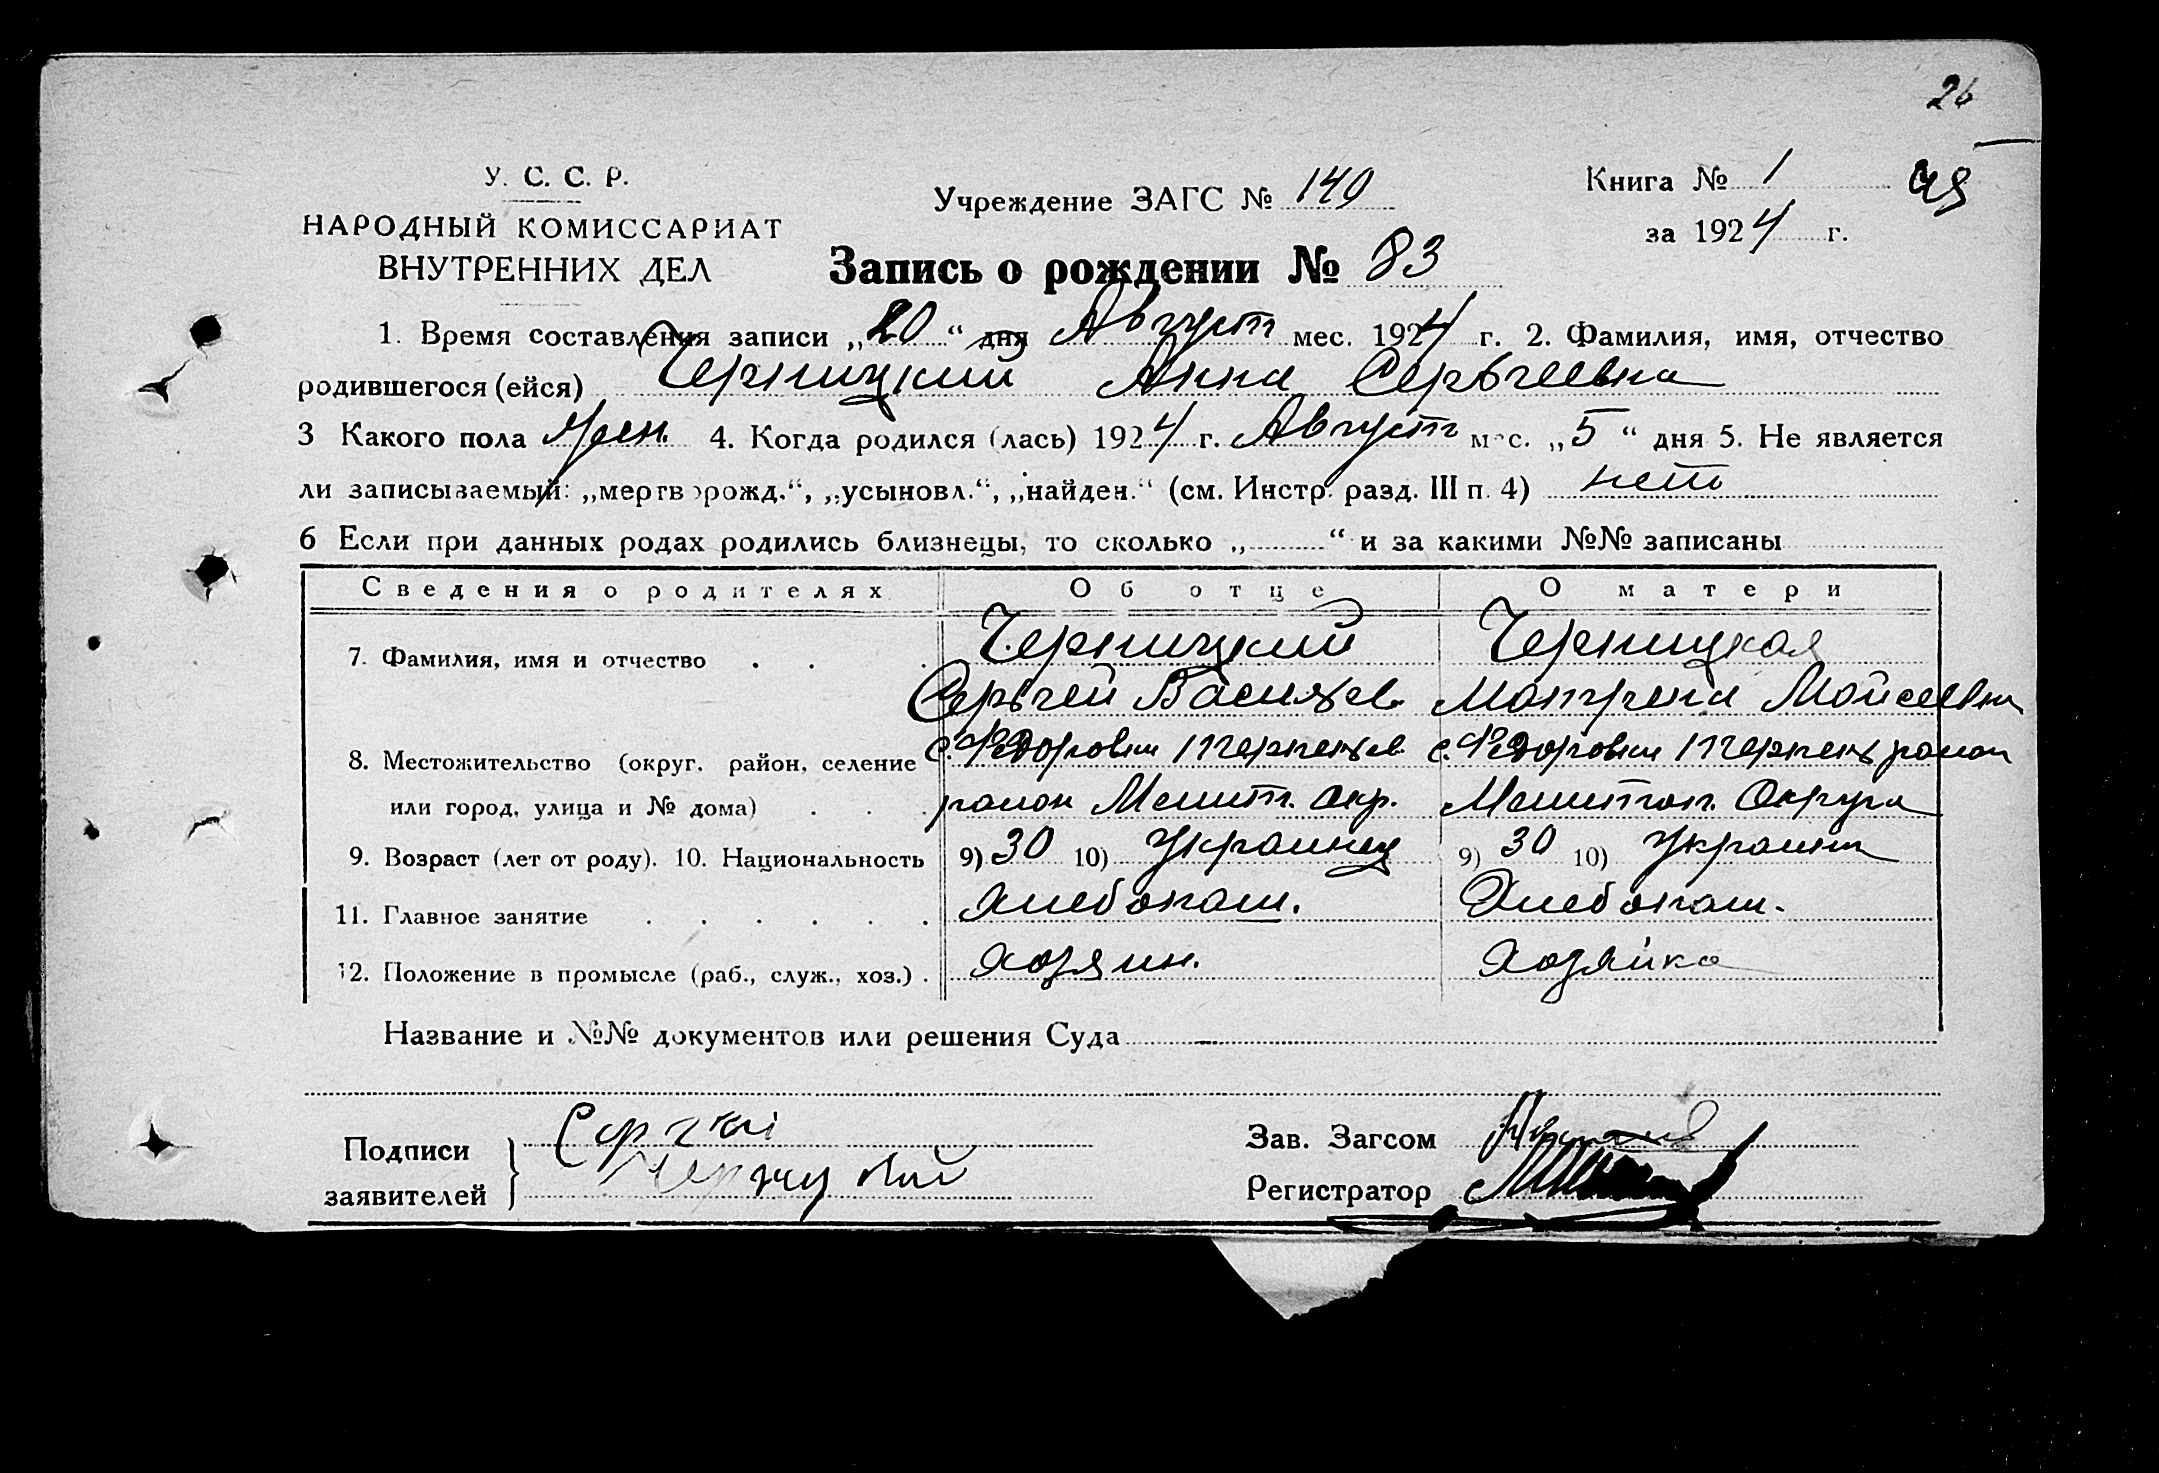 26
У. С. С. Р.
НАРОДНЫЙ КОМИССАРИАТ
ВНУТРЕННИХ ДЕЛ
Учреждение ЗАГС № 140
Книга № 1
за 1924 г.
Запись о рождении № 83
1. Время составления записи „20“ дня Август мес. 1924 г. 2. Фамилия, имя, отчество
родившегося (ейся) Черницкий Анна Сергеевна
3 Какого пола жен. 4. Когда родился (лась) 1924 г. Август мес. „5“ дня 5. Не является
ли записываемый: „мертворожд.“, „усыновл.“, „найден.“ (см. Инстр. разд. III п. 4) нет
6 Если при данных родах родились близнецы, то сколько „ “ и за какими №№ записаны
Сведения о родителях Об отце О матери
7. Фамилия, имя и отчество Черницкий Черницкая
Сергей Васильев. Мотрена Мойсеевна
8. Местожительство (округ, район, селение с. Федоровки с. Федоровки район
или город, улица и № дома) район Мелит. окр. Мелитоп. Округа
9. Возраст (лет от роду). 10. Национальность 9) 30 10) Украинец 9) 30 10) Украинка
11. Главное занятие Хлебопаш. Хлебопаш.
12. Положение в промысле (раб., служ., хоз.) хозяин. хозяйка
Название и №№ документов или решения Суда
Подписи
заявителей
Зав. Загсом
Регистратор